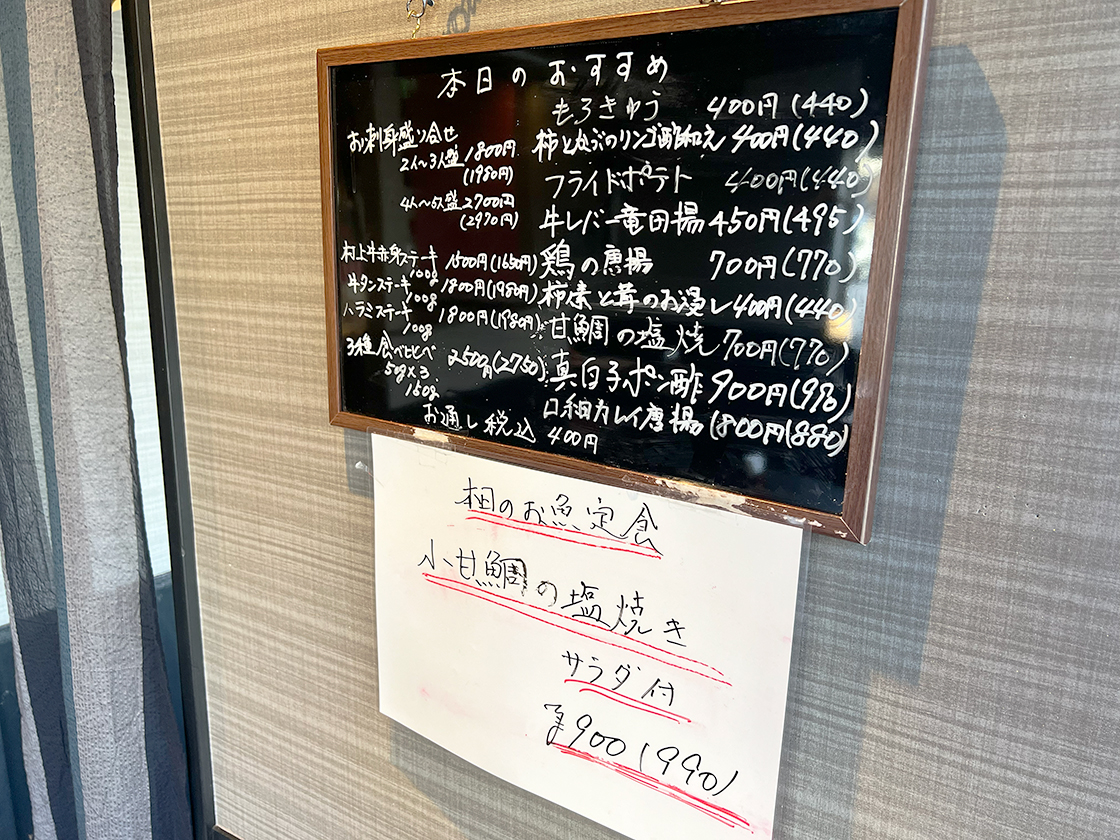 本日のおすすめ
お刺身盛り合せ
2人〜3人盛 1800円
(1980円)
4人〜5人盛 2700円
(2970円)
村上牛赤身ステーキ 1500円(1650円)
100g
牛タンステーキ 1800円(1980円)
100g
ハラミステーキ 1800円(1980円)
100g
3種食べヒヒべ 2500円(2750)
50g×3
150g
お通し税込 400円
もろきゅう 400円(440)
柿とかぶのリンゴ酢和え 400円(440)
フライドポテト 400円(440)
牛レバー竜田揚 450円(495)
鶏の唐揚 700円(770)
柿菜と茸のお浸し 400円(440)
甘鯛の塩焼 700円(770)
真白子ポン酢 900円(990)
口細カレイ唐揚 (800円(880)
本日のお魚定食
小甘鯛の塩焼き
サラダ付
900(990)